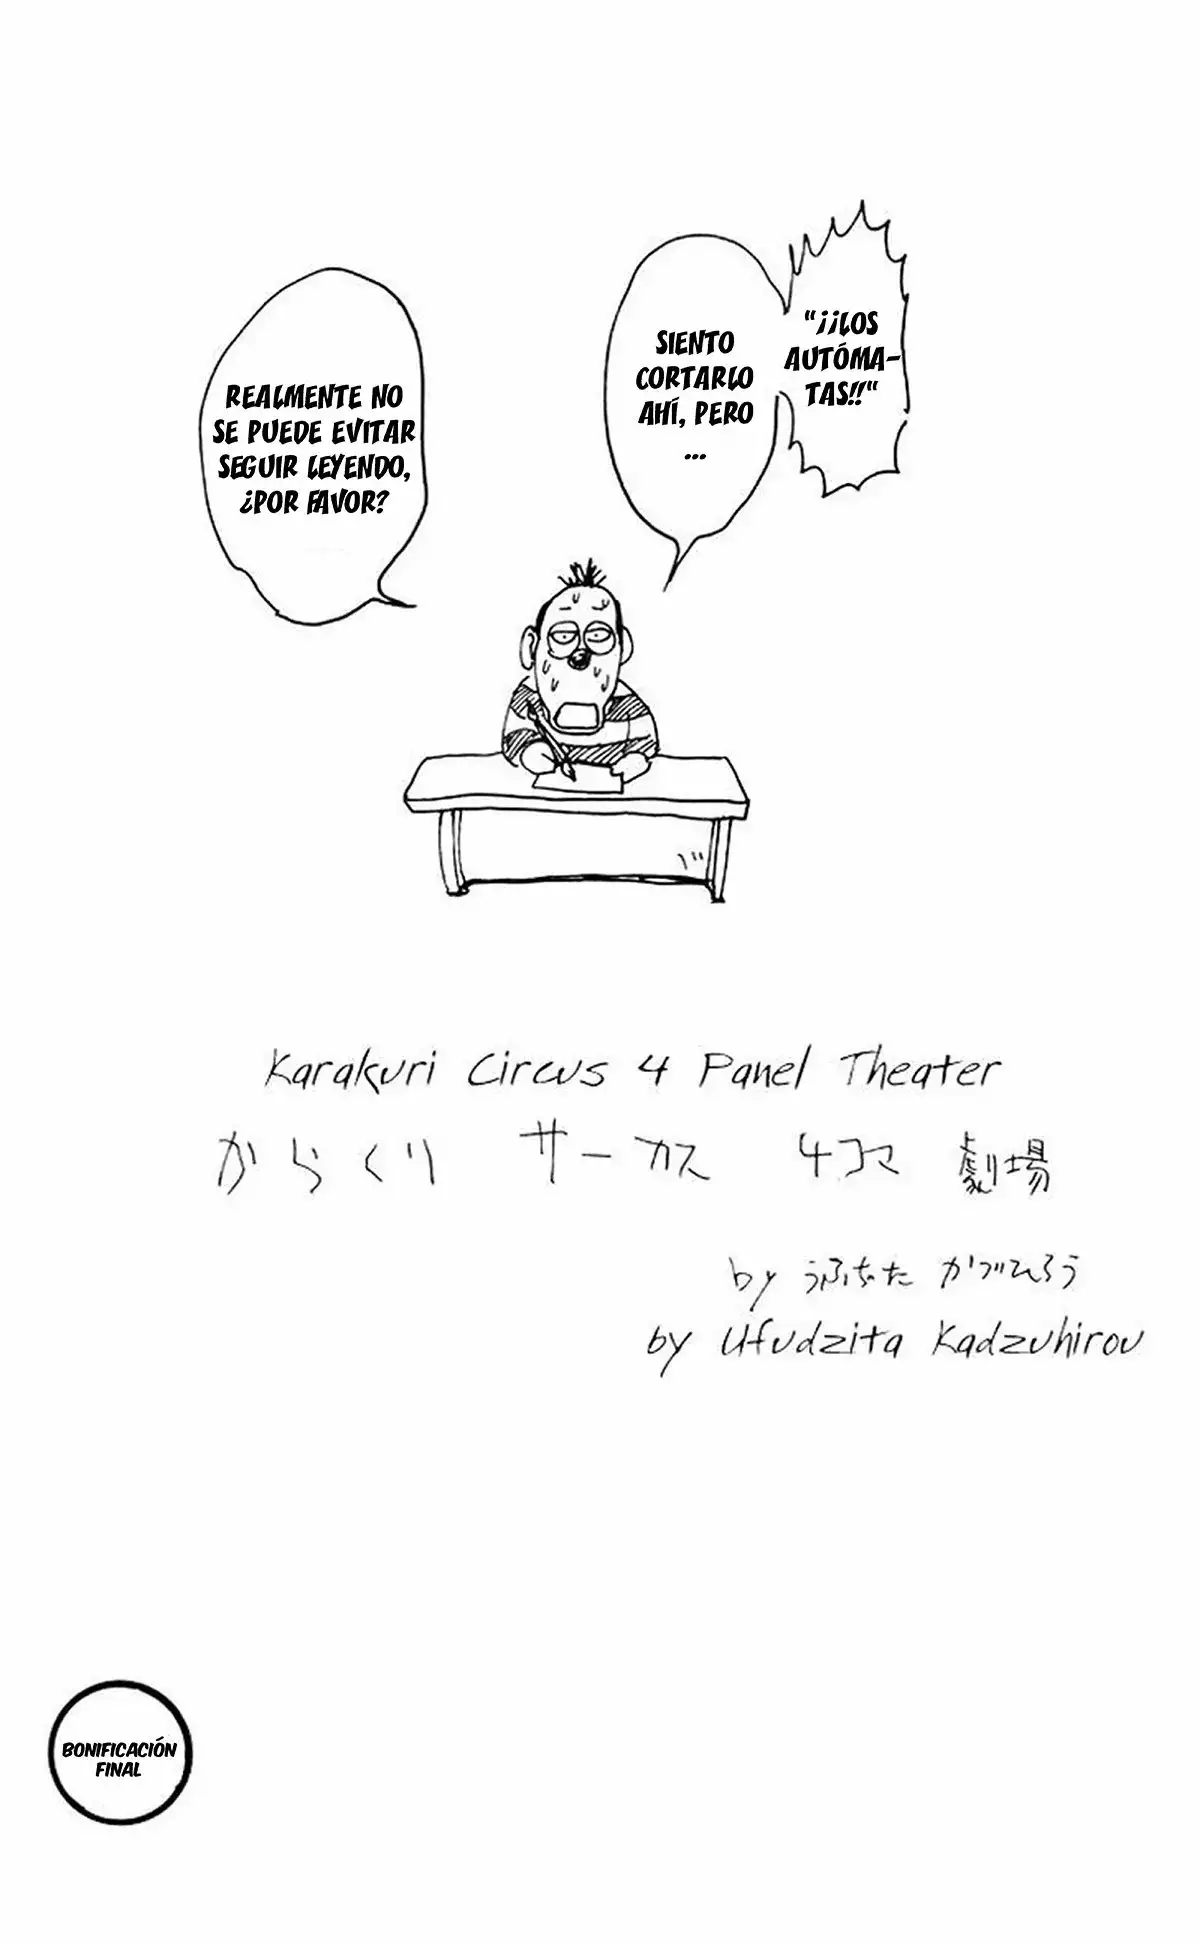 "¡¡LOS
AUTÓMA-
TAS!!"
SIENTO
CORTARLO
AHÍ, PERO
...
REALMENTE NO
SE PUEDE EVITAR
SEGUIR LEYENDO,
¿POR FAVOR?
Karakuri Circus 4 Panel Theater
からくり サーカス 4コマ 劇場
by うふぢた かづひろう
by Ufudzita Kadzuhirou
BONIFICACIÓN
FINAL